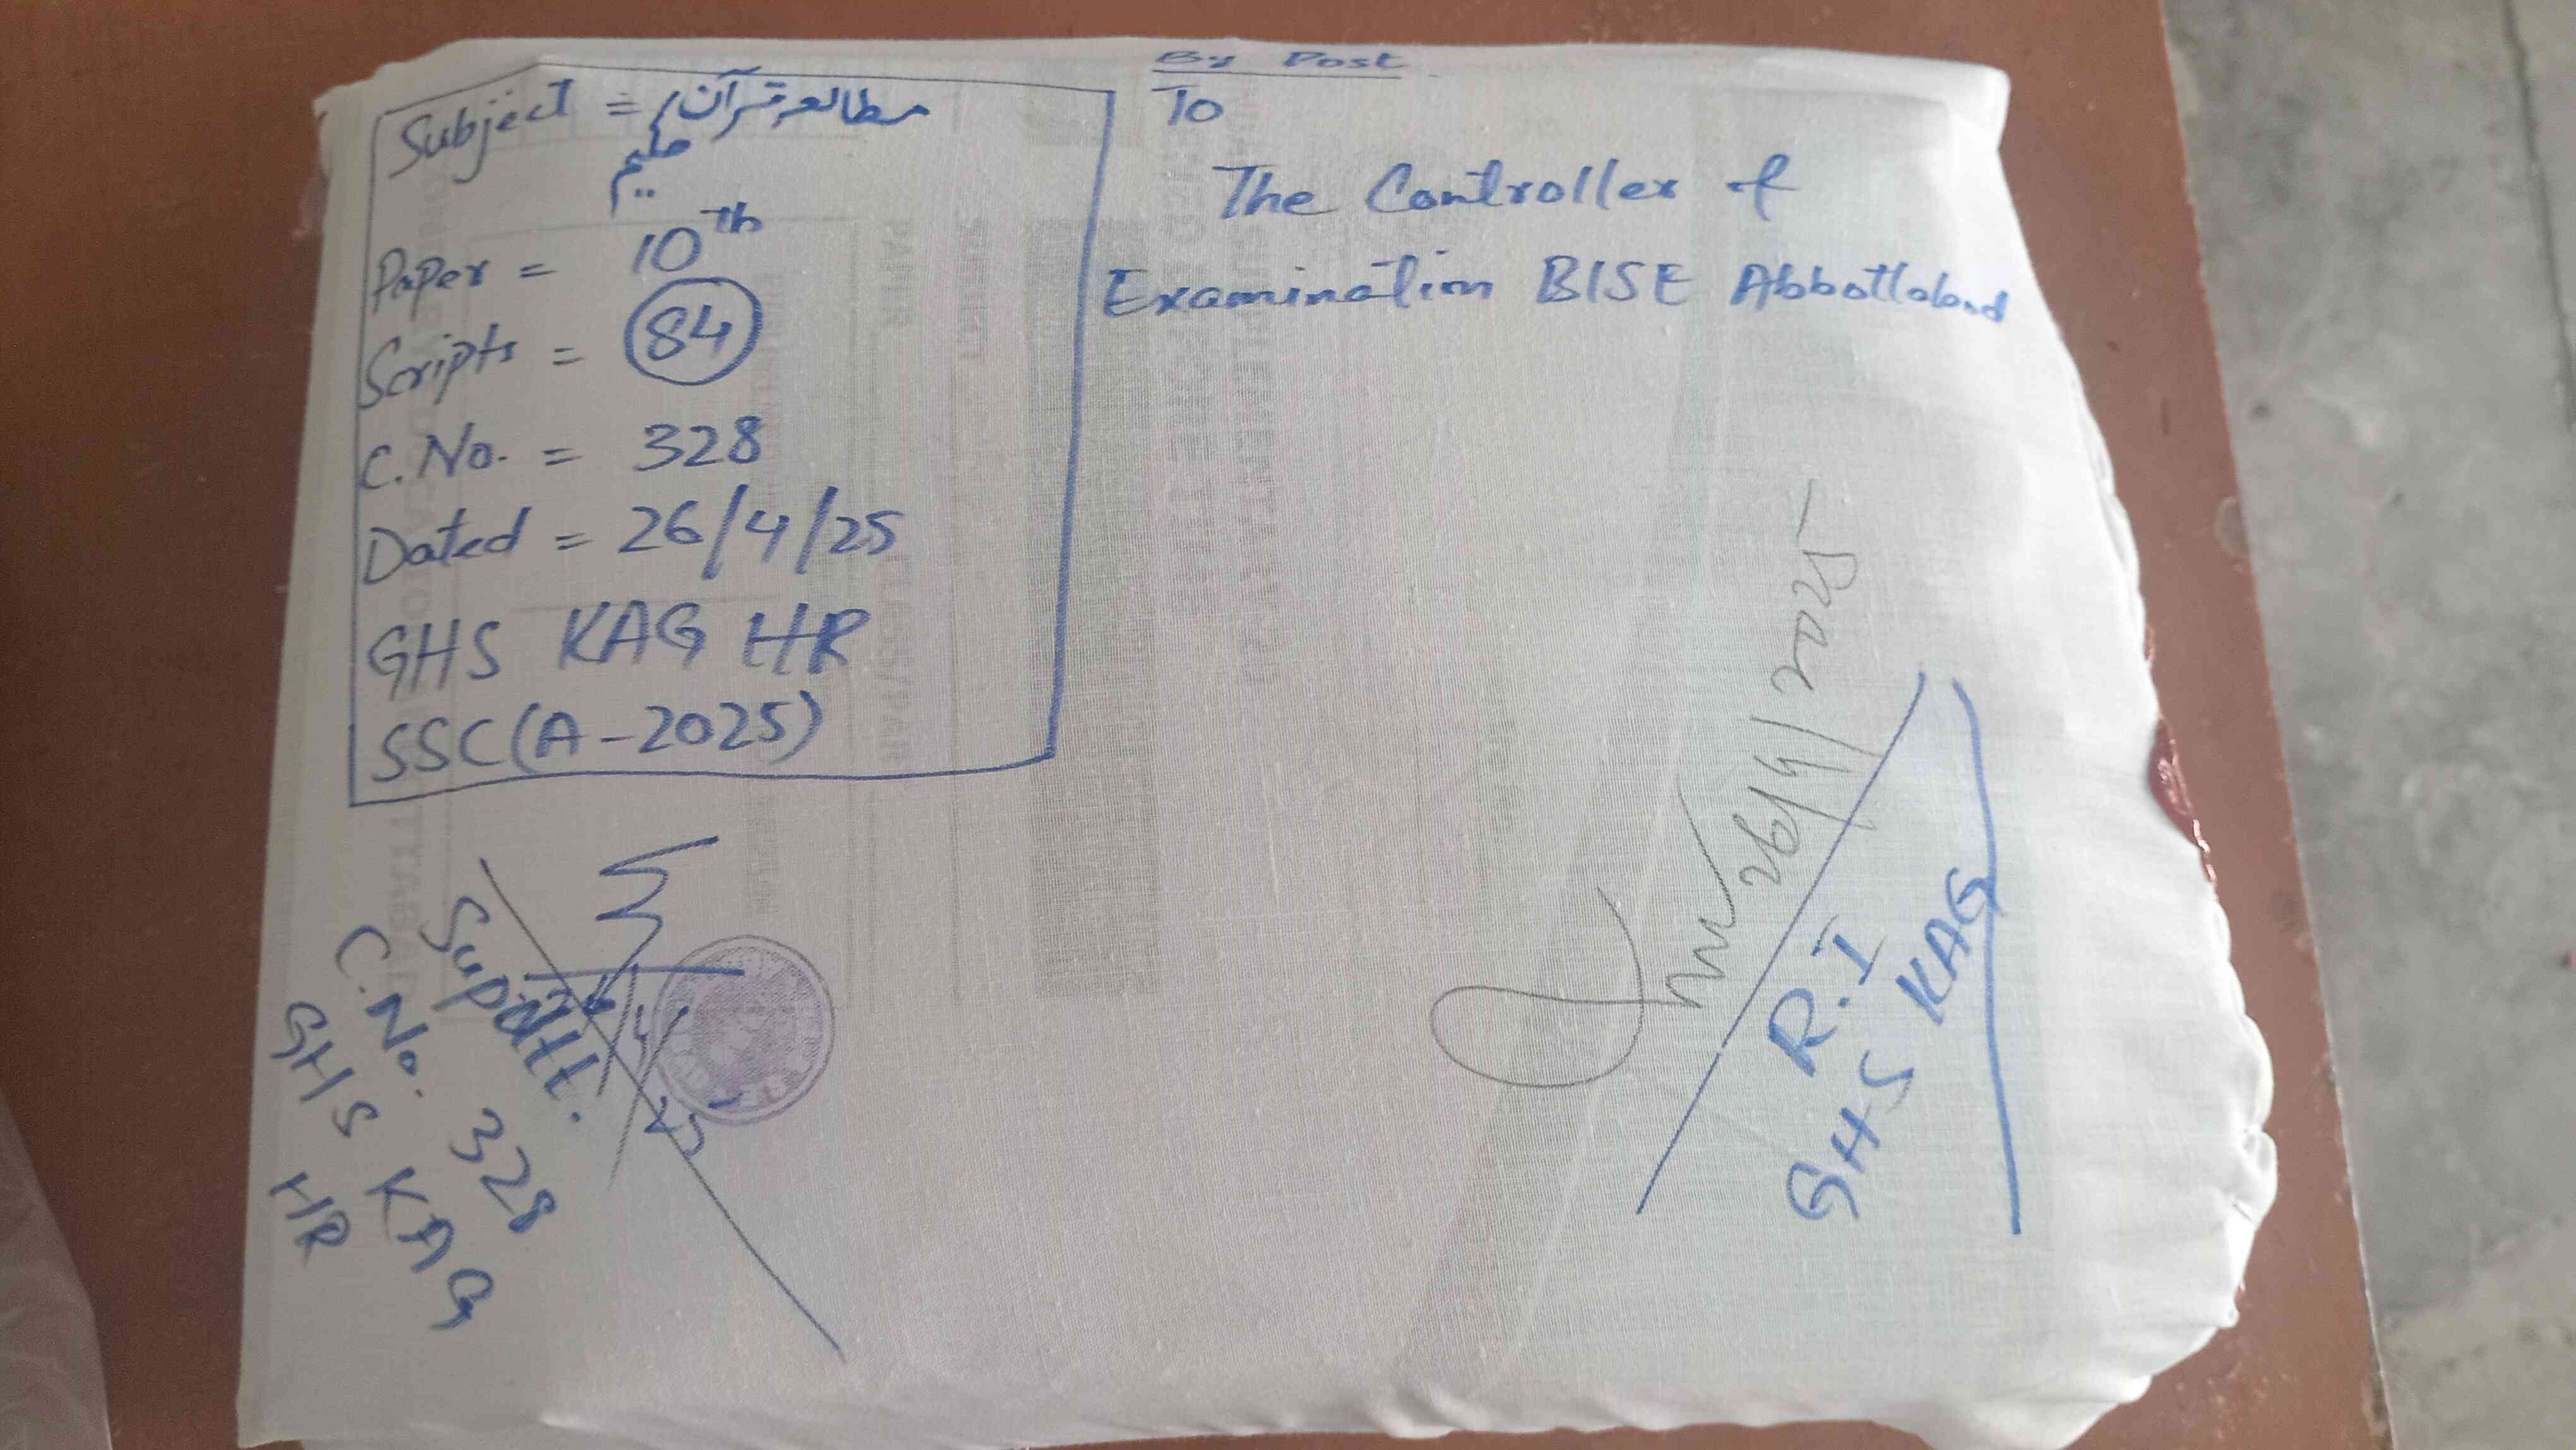 Subject = مطالعہ قرآن
حکیم
Paper = 10th
Scripts = 84
C.No. = 328
Dated = 26/4/25
GHS KAG HR
SSC(A-2025)
By Post
To
The Controller of
Examination BISE Abbottabad
26/4/25
Supdtt.
C.No. 328
GHS KAG
HR
26/4/2025
R.I
GHS KAG